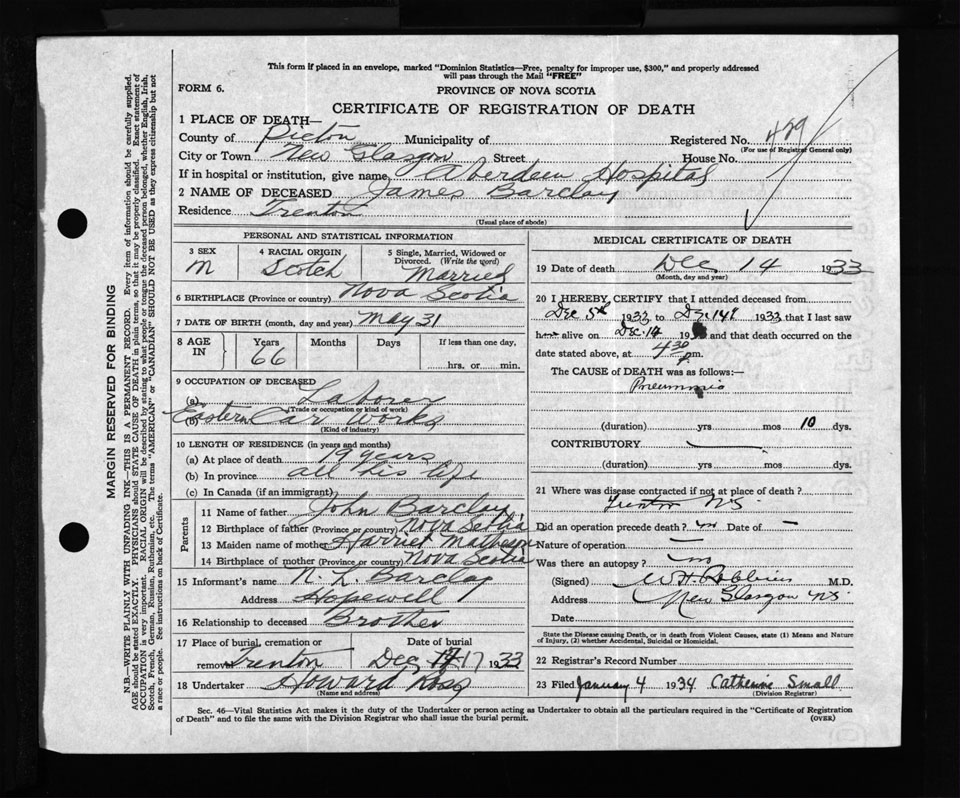 This form if placed in an envelope, marked "Dominion Statistics—Free, penalty for improper use, $300," and properly addressed
will pass through the Mail "FREE"
FORM 6.
PROVINCE OF NOVA SCOTIA
CERTIFICATE OF REGISTRATION OF DEATH
1 PLACE OF DEATH—
County of Pictou Municipality of Registered No. 489
(For use of Registrar General only)
City or Town New Glasgow Street House No.
If in hospital or institution, give name Aberdeen Hospital
2 NAME OF DECEASED James Barclay
Residence Trenton
(Usual place of abode)
PERSONAL AND STATISTICAL INFORMATION
3 SEX 4 RACIAL ORIGIN 5 Single, Married, Widowed or Divorced. (Write the word)
M Scotch Married
6 BIRTHPLACE (Province or country) Nova Scotia
7 DATE OF BIRTH (month, day and year) May 31
8 AGE IN Years Months Days If less than one day,
66 hrs. or min.
9 OCCUPATION OF DECEASED
(a) Laborer
(Trade or occupation or kind of work)
(b) Eastern Car Works
(Kind of industry)
10 LENGTH OF RESIDENCE (in years and months)
(a) At place of death 19 years
(b) In province all his life
(c) In Canada (if an immigrant)
Parents
11 Name of father John Barclay
12 Birthplace of father (Province or country) Nova Scotia
13 Maiden name of mother Harriet Matheson
14 Birthplace of mother (Province or country) Nova Scotia
15 Informant's name N. L. Barclay
Address Hopewell
16 Relationship to deceased Brother
17 Place of burial, cremation or removal Trenton Date of burial Dec 17 1933
18 Undertaker Howard Ross
(Name and address)
MEDICAL CERTIFICATE OF DEATH
19 Date of death Dec 14 1933
(Month, day and year)
20 I HEREBY CERTIFY that I attended deceased from
Dec 5th 1933 to Dec 14th 1933 that I last saw
h alive on Dec 14 19 and that death occurred on the
date stated above, at 4 30 p.m.
The CAUSE of DEATH was as follows:
Pneumonia
(duration) yrs mos 10 dys.
CONTRIBUTORY
(duration) yrs mos dys.
21 Where was disease contracted if not at place of death?
Trenton NS
Did an operation precede death? no Date of —
Nature of operation —
Was there an autopsy? no
(Signed) W H Robbins M.D.
Address New Glasgow NS
Date
State the Disease causing Death, or in death from Violent Causes, state (1) Means and Nature
of Injury, (2) whether Accidental, Suicidal or Homicidal.
22 Registrar's Record Number
23 Filed January 4 1934 Catherine Small
(Division Registrar)
Sec. 46—Vital Statistics Act makes it the duty of the Undertaker or person acting as Undertaker to obtain all the particulars required in the "Certificate of Registration
of Death" and to file the same with the Division Registrar who shall issue the burial permit.
(OVER)
MARGIN RESERVED FOR BINDING
N.B.—WRITE PLAINLY WITH UNFADING INK—THIS IS A PERMANENT RECORD. Every item of information should be carefully supplied.
AGE should be stated EXACTLY. PHYSICIANS should STATE CAUSE OF DEATH in plain terms, so that it may be properly classified. Exact statement of
OCCUPATION is very important. RACIAL ORIGIN will be described by stating to what people or tongue the deceased person belonged, whether English, Irish,
Scotch, French, German, Russian, Ruthenian, etc. The terms "AMERICAN" or "CANADIAN" SHOULD NOT BE USED as they express citizenship but not
a race or people. See instructions on back of Certificate.